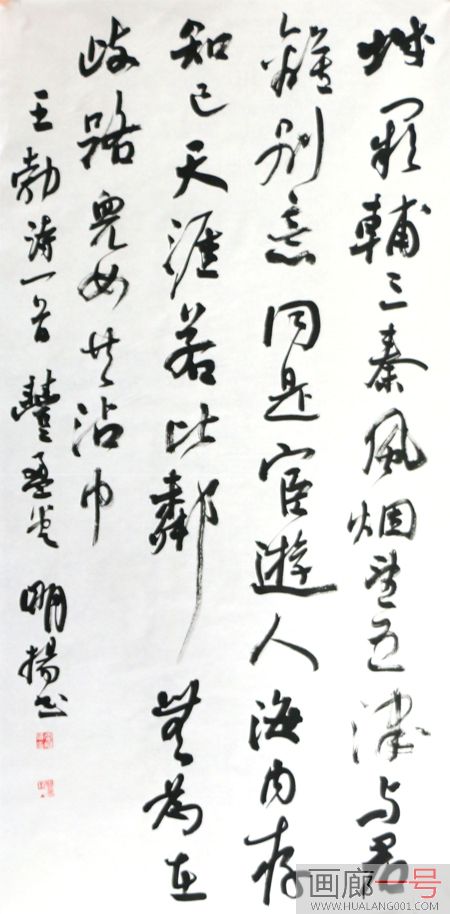 城闕輔三秦風烟望五津与君
離別意同是宦遊人海内存
知己天涯若比鄰無為在
歧路兒女共沾巾
王勃詩一首 豐 明揚书
画廊一号
WWW.HUALANG001.COM